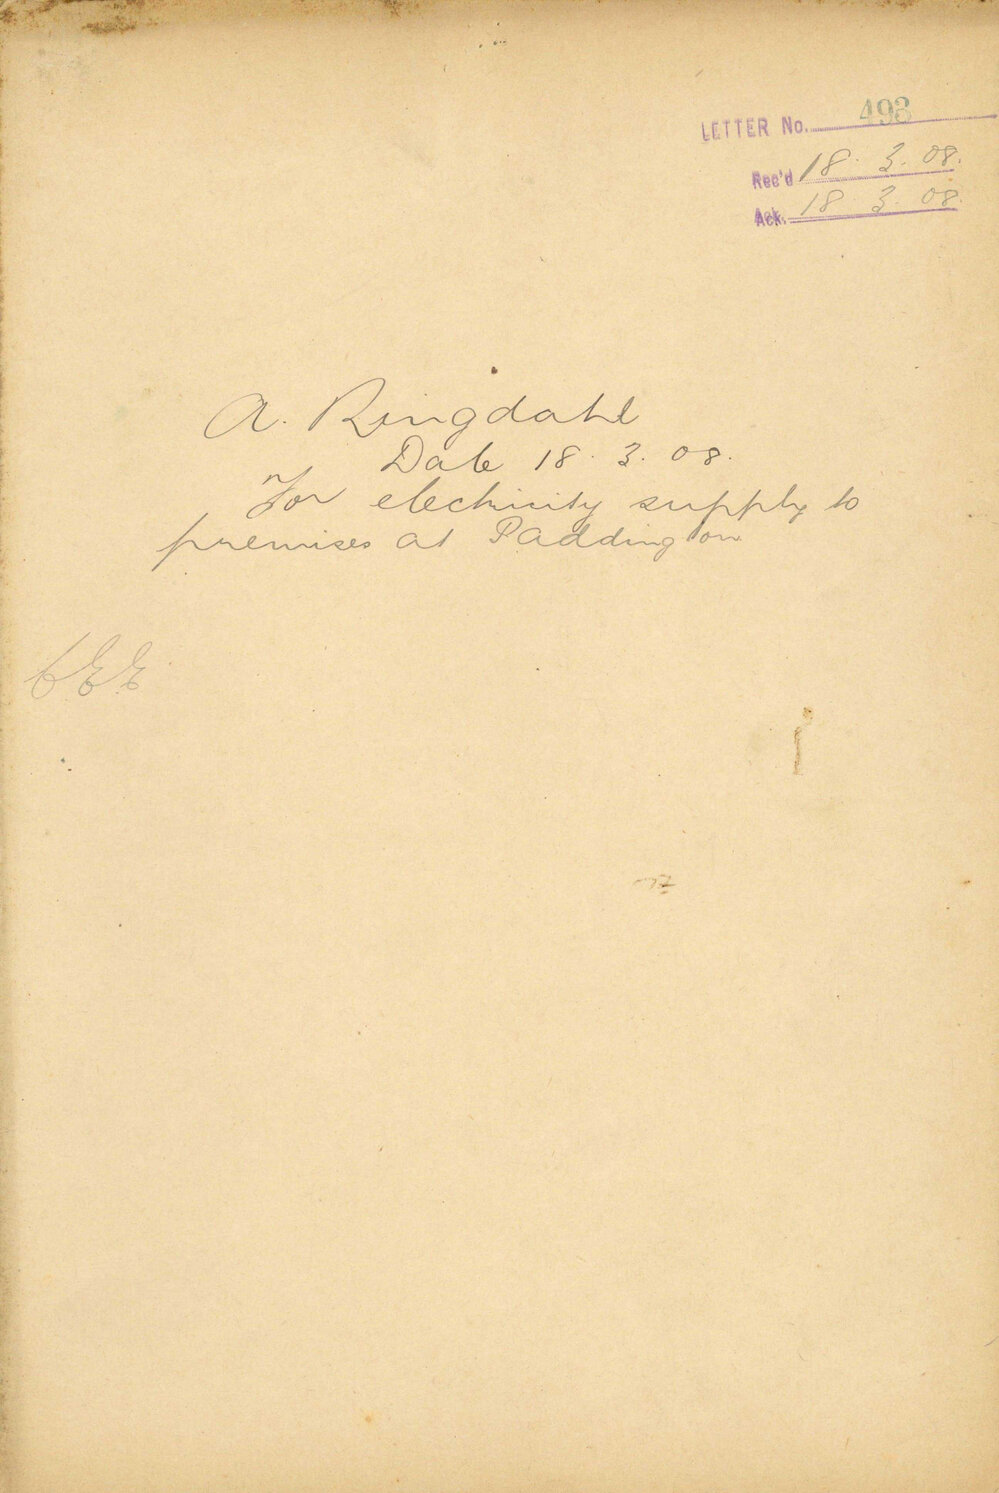 LETTER No. 493
Rec'd 18. 3. 08.
Ack. 18 3. 08.
A. Ringdahl
Date 18. 3. 08.
For electricity supply to
premises at Paddington